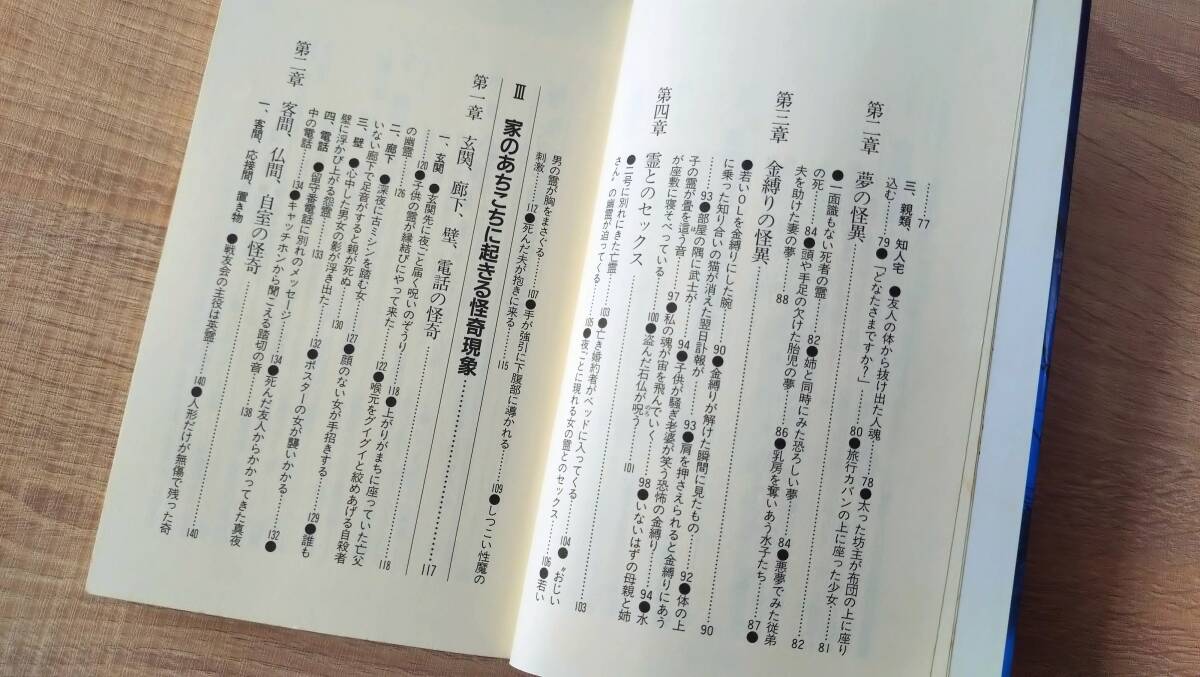 ……77
三、親類、知人宅 ●友人の体から抜け出た人魂……78●太った坊主が布団の上に座り
込む……79●「どなたさまですか?」……80●旅行カバンの上に座った少女……81
第二章 夢の怪異、……82
●一面識もない死者の霊……82●姉と同時にみた恐ろしい夢……84●悪夢でみた従弟
の死……84●頭や手足の欠けた胎児の夢……86●乳房を奪いあう水子たち……87●
夫を助けた妻の夢……88
第三章 金縛りの怪異、……90
●若いOLを金縛りにした腕……90●金縛りが解けた瞬間に見たもの……92●体の上
に乗った知り合いの猫が消えた翌日訃報が……93●肩を押さえられると金縛りにあう
……93●部屋の隅に武士が……94●子供が騒ぎ老婆が笑う恐怖の金縛り……94●水
子の霊が畳を這う音……97●私の魂が宙を飛んでいく……98●いないはずの母親と姉
が座敷に寝そべっている……100●盗んだ石仏が呪う……101
第四章 霊とのセックス、……103
●二号に別れにきた亡霊……103●亡き婚約者がベッドに入ってくる……104●“おじい
さん”の幽霊が迫ってくる……105●夜ごとに現れる女の霊とのセックス……106●若い
男の霊が胸をまさぐる……107●手が強引に下腹部に導かれる……109●しつこい性魔の
刺激……112●死んだ夫が抱きに来る……115
III 家のあちこちに起きる怪奇現象……117
第一章 玄関、廊下、壁、電話の怪奇……118
一、玄関 ●玄関先に夜ごと届く呪いのぞうり……118●上がりがまちに座っていた亡父
……120●子供の霊が縁結びにやって来た……122●喉元をグイグイと絞めあげる自殺者
の幽霊……126
二、廊下 ●深夜に古ミシンを踏む女……127●頭のない女が手招きする……129●誰も
いない廊下で足音がすると親が死ぬ……130
三、壁 ●心中した男女の影が浮き出た……132●ポスターの女が襲いかかる……132●
壁に浮かび上がる怨霊……133
四、電話 ●留守番電話に別れのメッセージ……134●死んだ友人からかかってきた真夜
中の電話……134●キャッチホンから聞こえる踏切の音……138
第二章 客間、仏間、自室の怪奇……140
一、客間、応接間、置き物 ●戦友会の主役は英霊……140●人形だけが無傷で残った奇